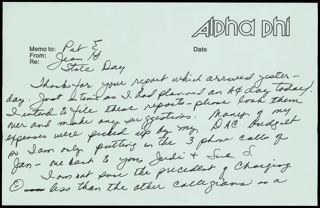 Alpha Phi
Memo to: Pat E
From: Jean H
Re: State Day
Date
Thanks for your report which arrived yester-
day. Just as I had planned an AΦ day today!
I intend to file these reports - please look them
over and make any suggestions. Many of my
expenses were picked up by my DAC budget
so I am only putting in the 3 phone calls of
Jan - one each to you, Judi & Sue S.
I am not sure the precedent of charging
less than the other collegians is a